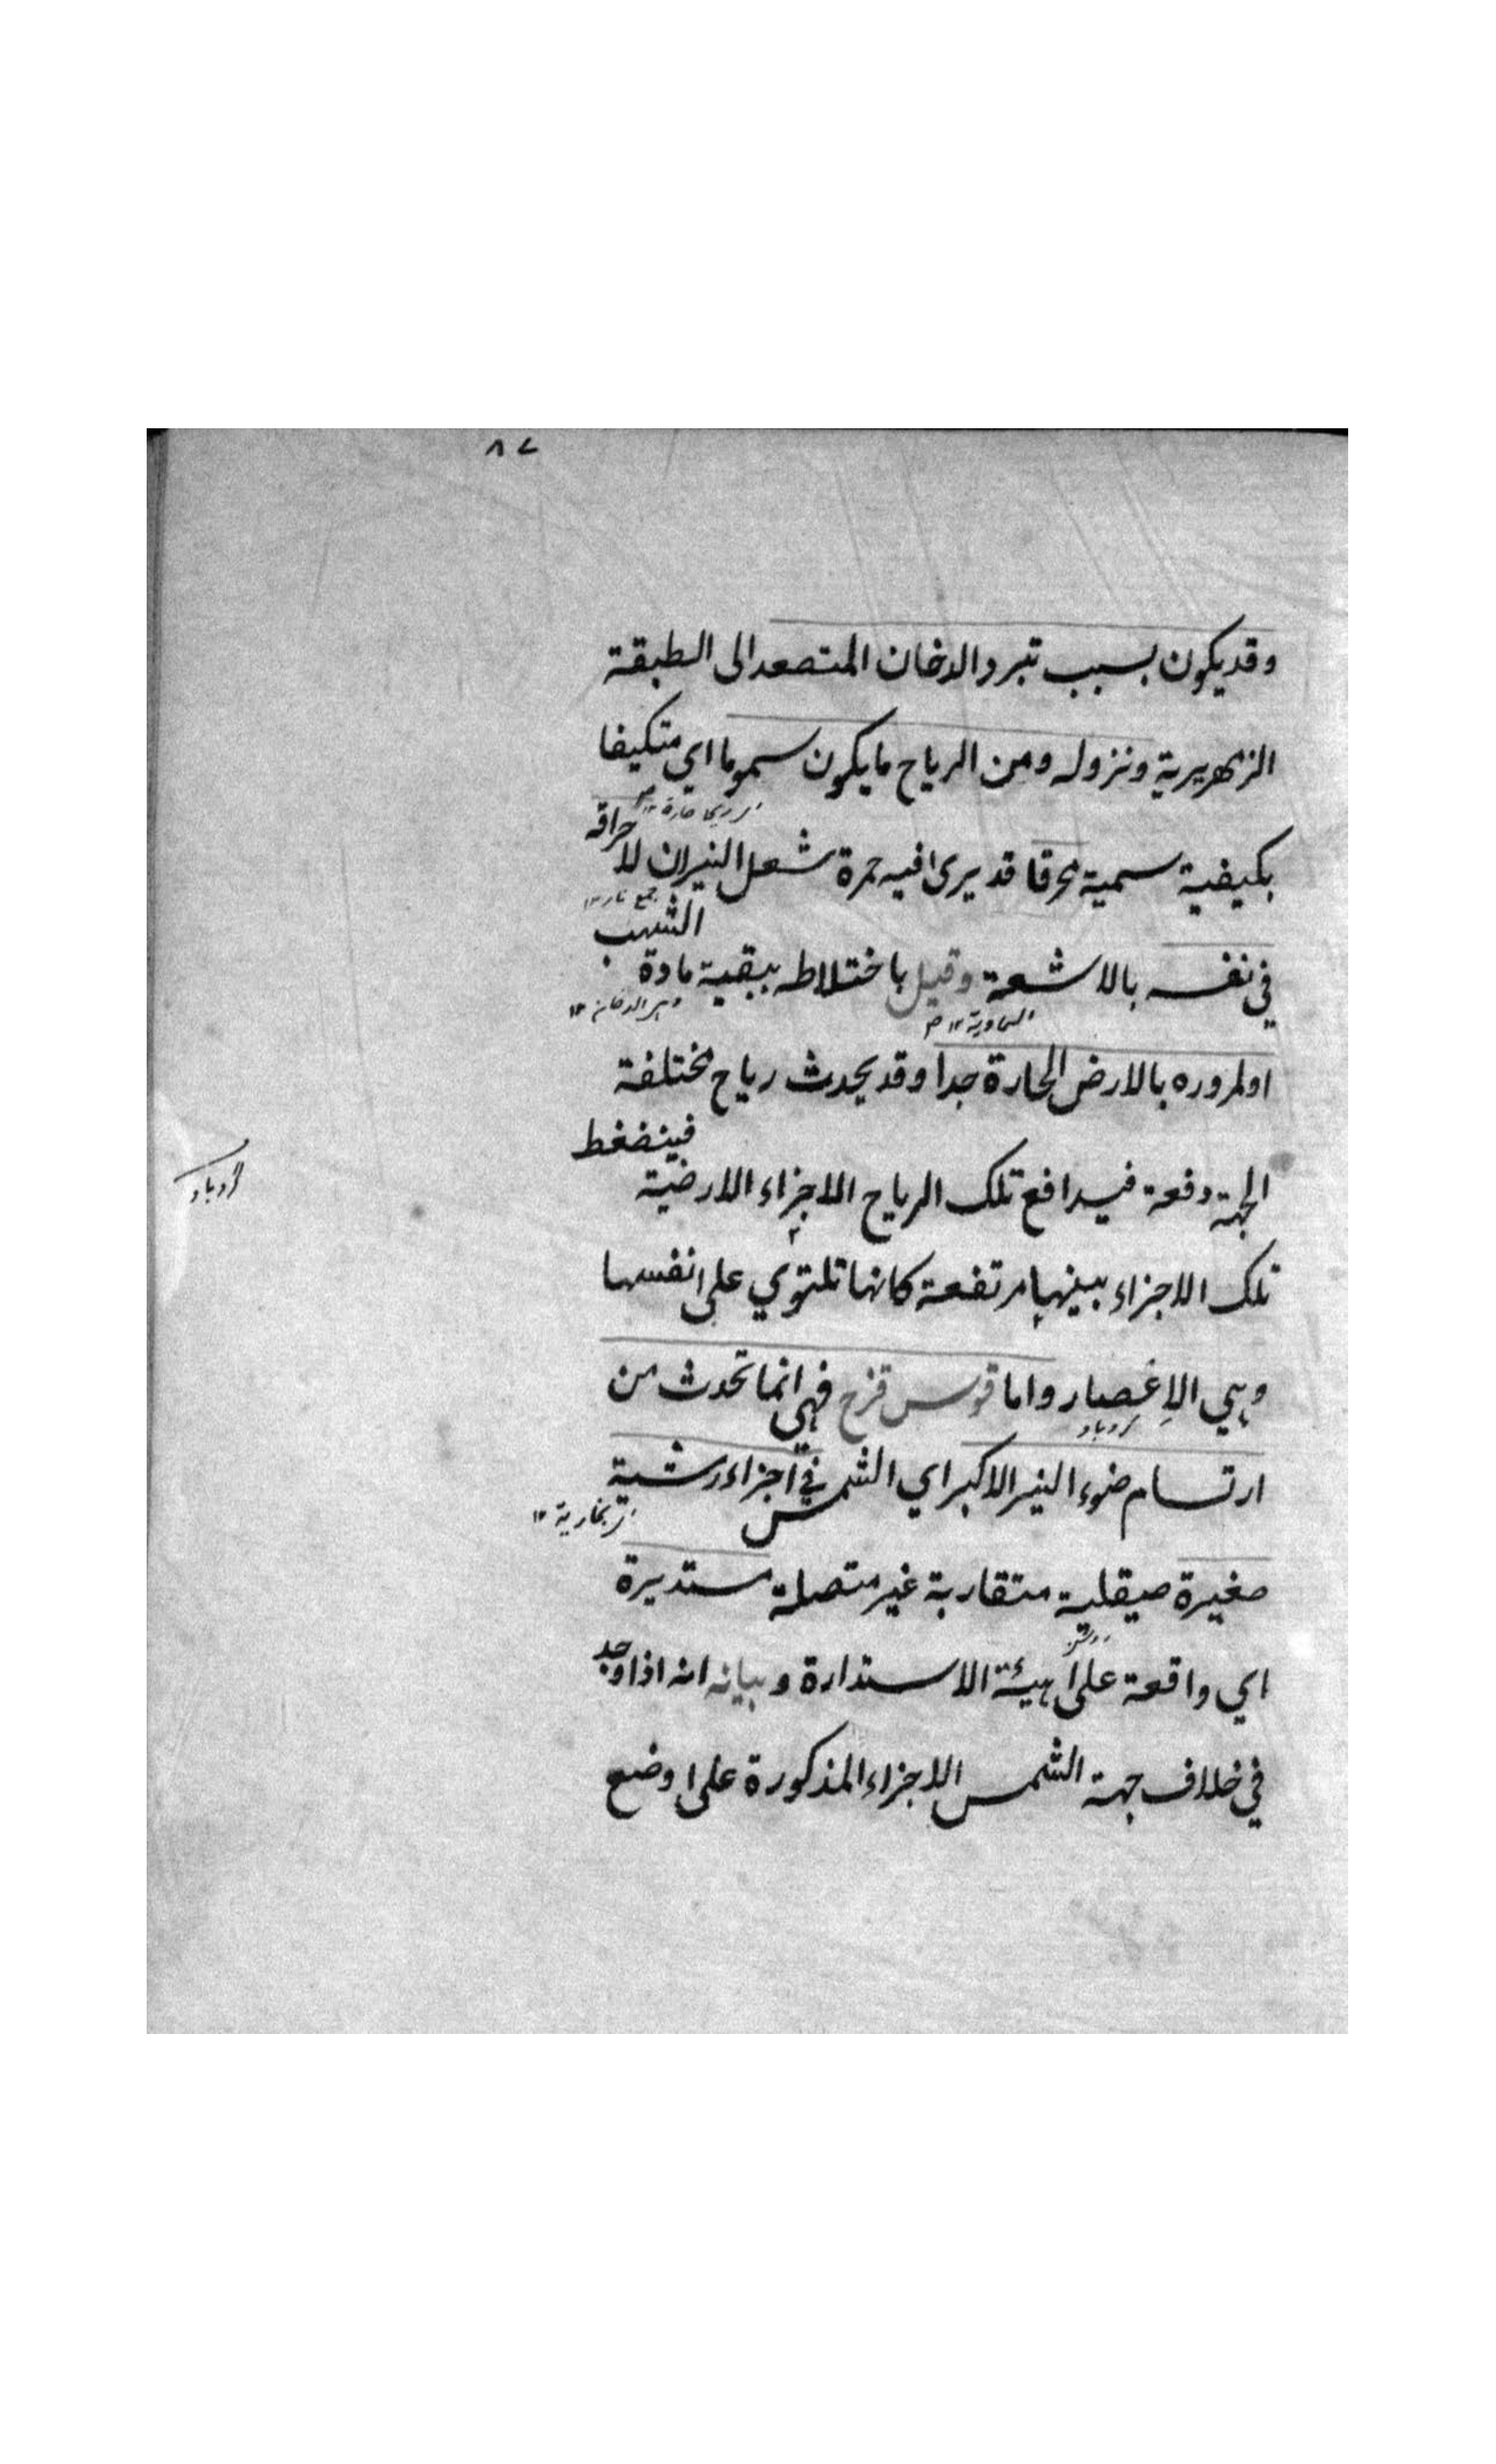 ٨٧
وقد يكون بسبب تبرد الدخان المتصعد الى الطبقة
الزمهريرية ونزوله ومن الرياح ما يكون سموما اي متكيفا
بكيفية سمية محرقا قد يرى فيه حمرة شعل النيران لاحراقه
جمع نار ١٢
في نفسه بالاشعة وقيل باختلاطه ببقية مادة الشهب
السماوية ١٢
وهي الدخان ١٢
او لمروره بالارض الحارة جدا وقد يحدث رياح مختلفة
الجهة دفعة فيدافع تلك الرياح الاجزاء الارضية فينضغط
تلك الاجزاء بينها مرتفعة كانها تلتوي على نفسها
وهي الاِعصار واما قوس قزح فهي انما تحدث من
گردباد
ارتسام ضوء النير الاكبر اي الشمس في اجزاء رشية
بخارية ١٢
صغيرة صيقلية متقاربة غير متصلة مستديرة
اي واقعة على هيئة الاستدارة وبيانه انه اذا وجد
في خلاف جهة الشمس الاجزاء المذكورة على وضع
گردباد